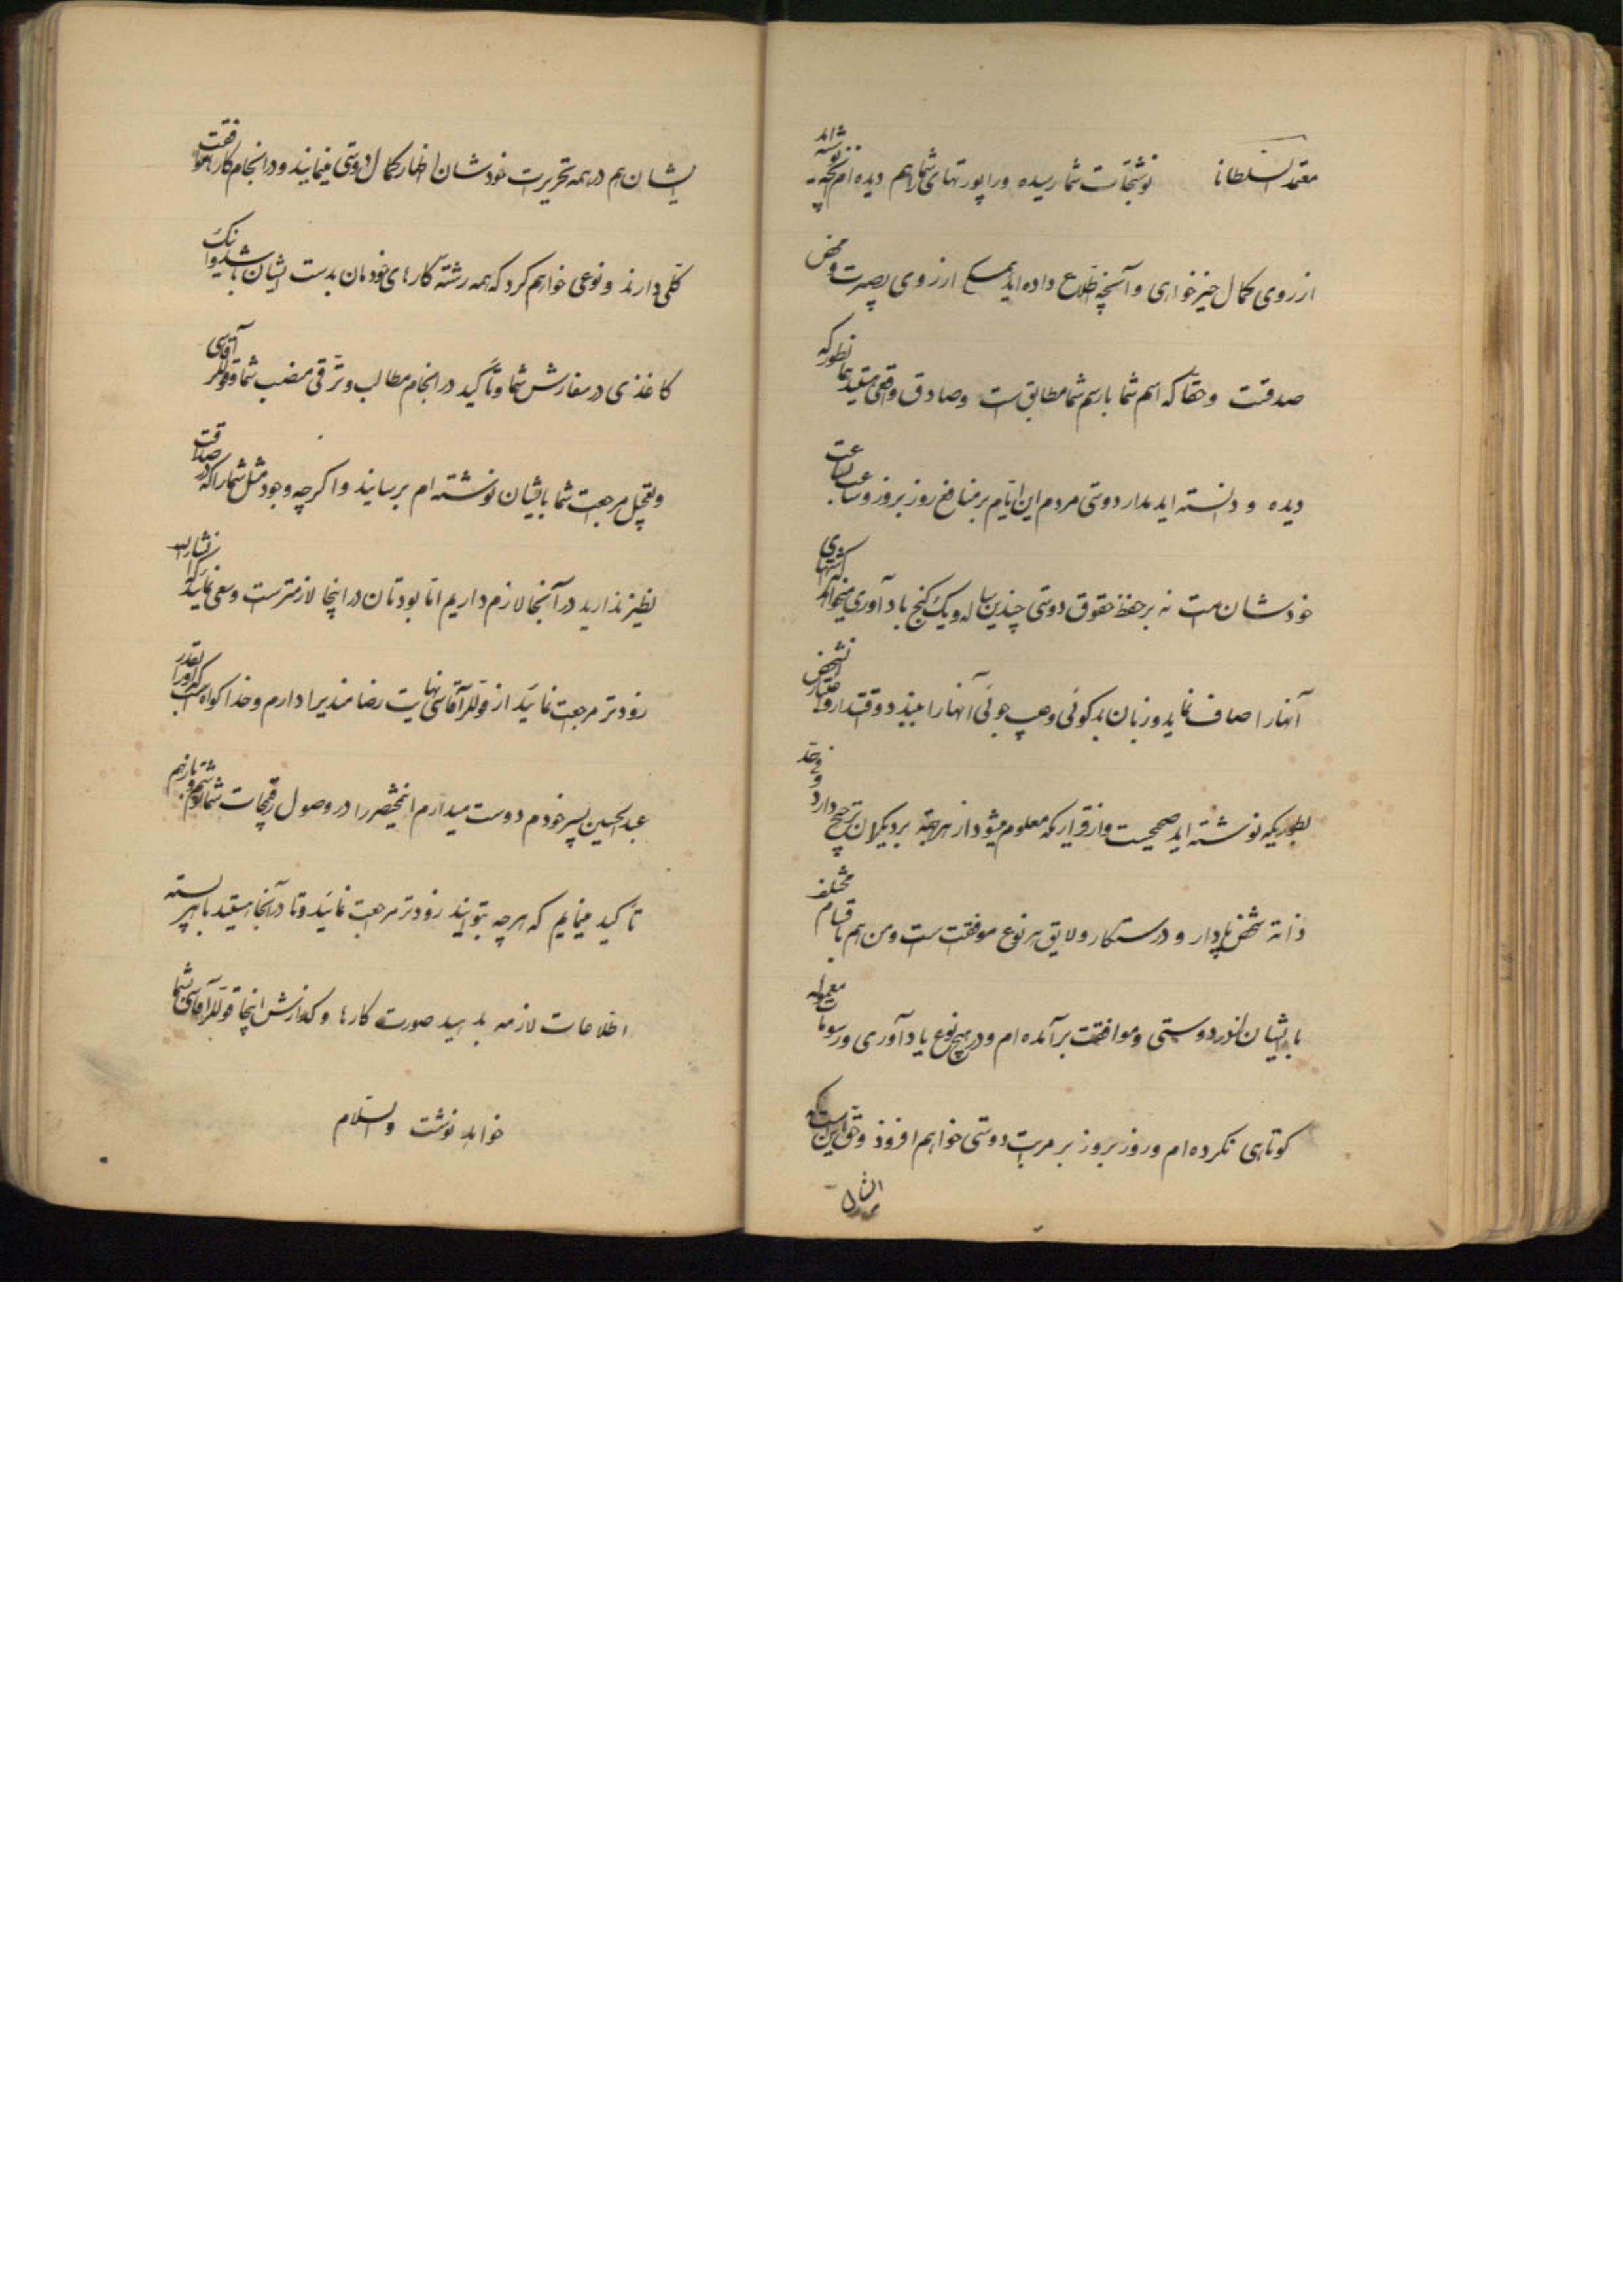 معتمد السلطانا نوشتجات شما رسیده و راپورتهای شما را هم دیده ام آنچه نوشته اید
از روی کمال خیرخواهی و آنچه اطلاع داده اید همه از روی بصیرت و محض
صدقت و حقا که اسم شما با رسم شما مطابق است و صادق واقعی هستید همانطور که
دیده و دانسته اید مدار دوستی مردم این ایام بر منافع روز بروز و ساعت بساعت
خودشان است نه بر حفظ حقوق دوستی چندین ساله و یک کنج یادآوری میخواهد
آنها را صاف نماید و زبان بدگوئی و عیب جوئی آنها را ببندد و اقتدار و اعتبار
بطوریکه نوشته اید صحیح است و از قراریکه معلوم میشود از هر جهة بر دیگران ترجیح دارد و
ذاتا شخص پادار و درستکار و لایق هر نوع موافقت است و من هم باقسام مختلف
با ایشان از در دوستی و موافقت برآمده ام و در هیچ نوع یادآوری و رسومات معموله
کوتاهی نکرده ام و روز بروز بر مراتب دوستی خواهم افزود و حق اینست که
ایشان هم در همه تحریرات خودشان اظهار کمال دوستی مینمایند و در انجام کارها موافقت
کلی دارند و نوعی خواهم کرد که همه رشته کارهای خودمان بدست ایشان باشد
کاغذی در سفارش شما و تأکید در انجام مطالب و ترقی منصب شما و قوللر آقاسی
و تعجیل مراجعت شما بایشان نوشته ام برسانید و اگرچه وجود مثل شما را که در صداقت
نظیر ندارید در آنجا لازم داریم اما بودتان در اینجا لازمتر است و سعی نمائید که انشاءالله
زودتر مراجعت نمائید از قوللر آقاسی نهایت رضامندی را دارم و خدا گواه است که او را بقدر
عبدالحسین پسر خودم دوست میدارم این مختصر را در وصول رقیجات شما نوشتم و باز هم
تأکید مینمایم که هر چه بتوانید زودتر مراجعت نمائید و تا در آنجا هستید با هر پسته
اطلاعات لازمه بدهید صورت کارها و گذارش اینجا را قوللر آقاسی بشما
خواهد نوشت والسلام